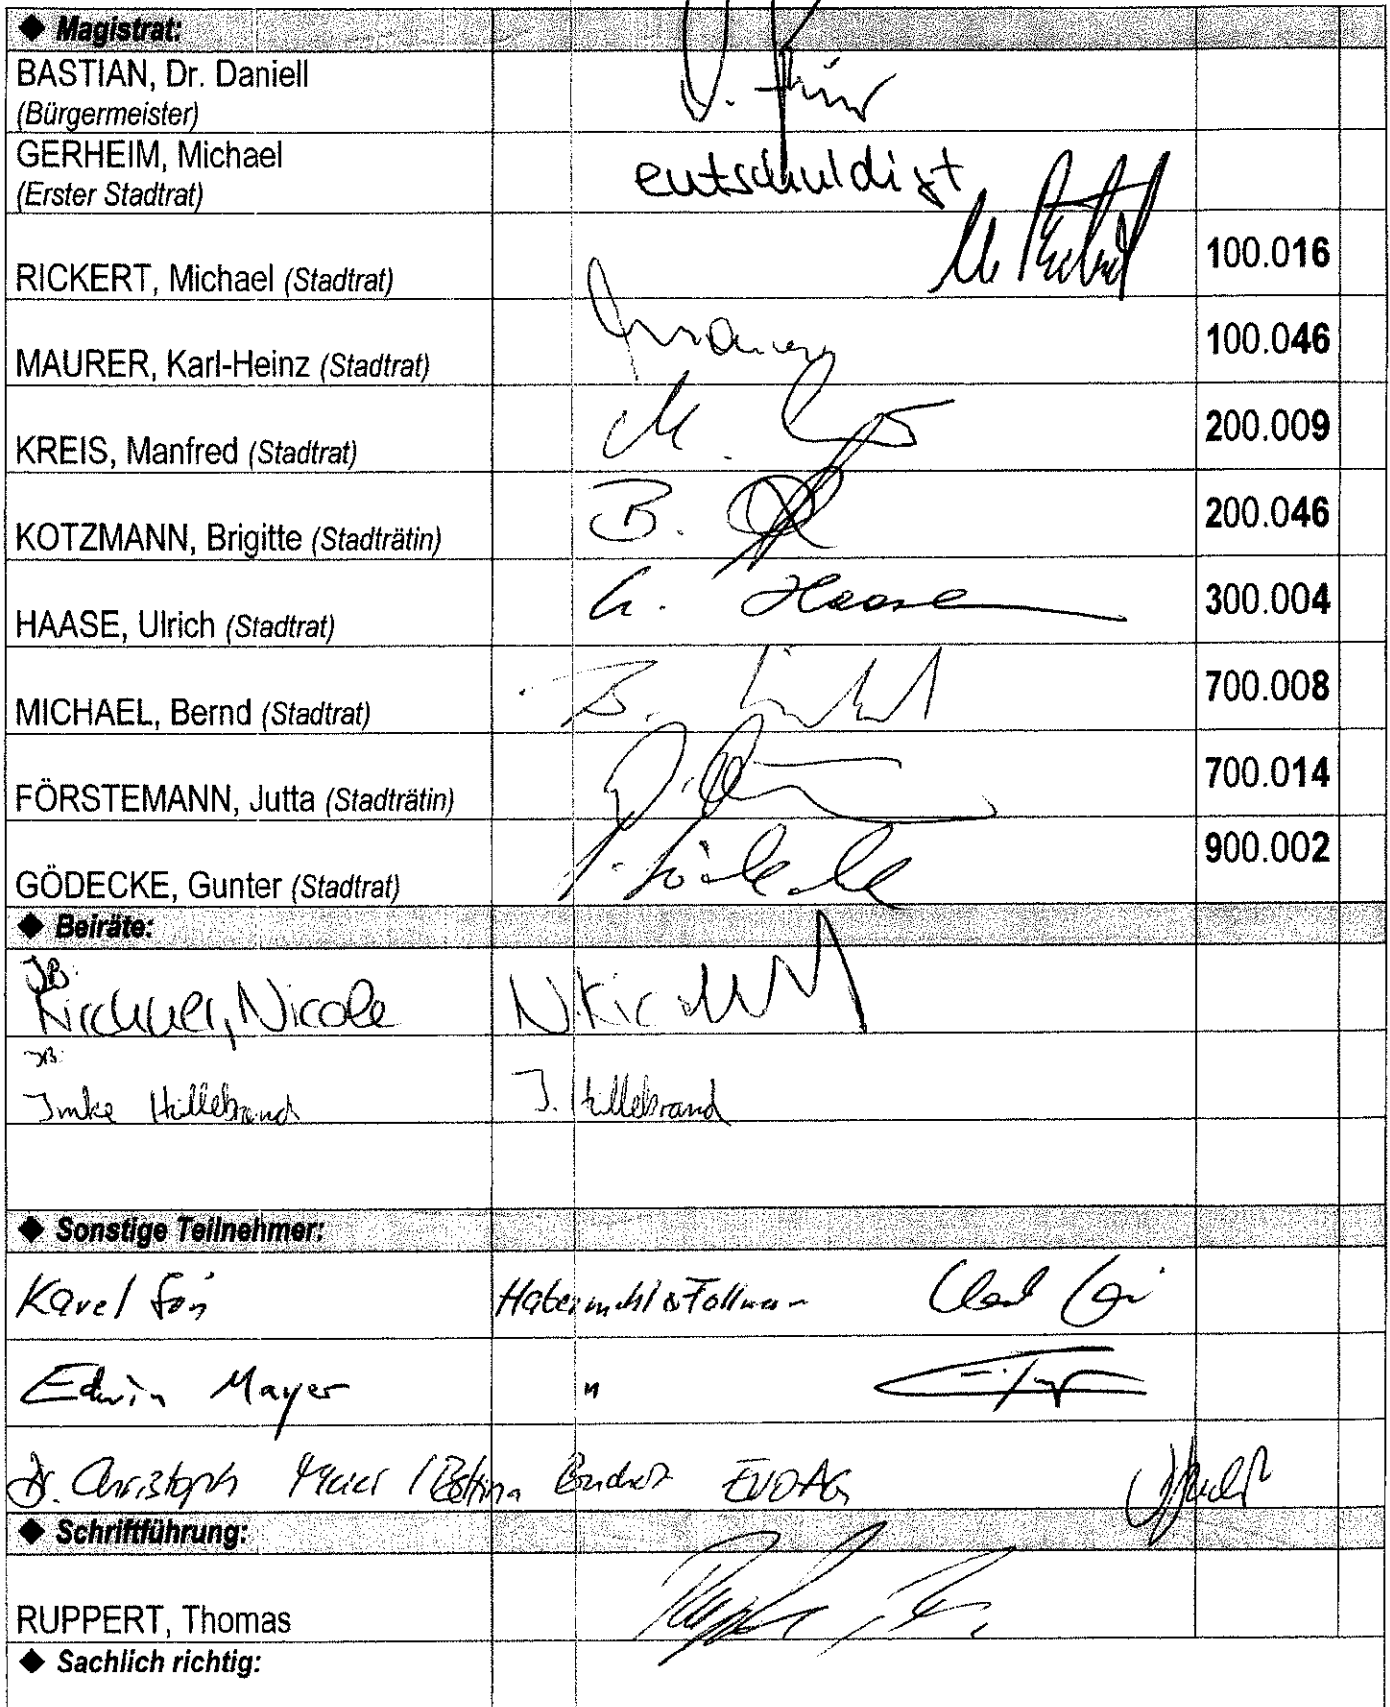 ◆ Magistrat:
BASTIAN, Dr. Daniell
(Bürgermeister)
GERHEIM, Michael
(Erster Stadtrat)
entschuldigt
RICKERT, Michael (Stadtrat) 100.016
MAURER, Karl-Heinz (Stadtrat) 100.046
KREIS, Manfred (Stadtrat) M. 200.009
KOTZMANN, Brigitte (Stadträtin) B. 200.046
HAASE, Ulrich (Stadtrat) U. Haase 300.004
MICHAEL, Bernd (Stadtrat) B. 700.008
FÖRSTEMANN, Jutta (Stadträtin) 700.014
GÖDECKE, Gunter (Stadtrat) Gödecke 900.002
◆ Beiräte:
JB:
Kirchner, Nicole N. Kirchner
JB:
Imke Hillebrand I. Hillebrand
◆ Sonstige Teilnehmer:
Karel Habermehl & Follmann
Edwin Mayer "
Dr. Christoph Meier / Bettina EVO AG
◆ Schriftführung:
RUPPERT, Thomas
◆ Sachlich richtig: